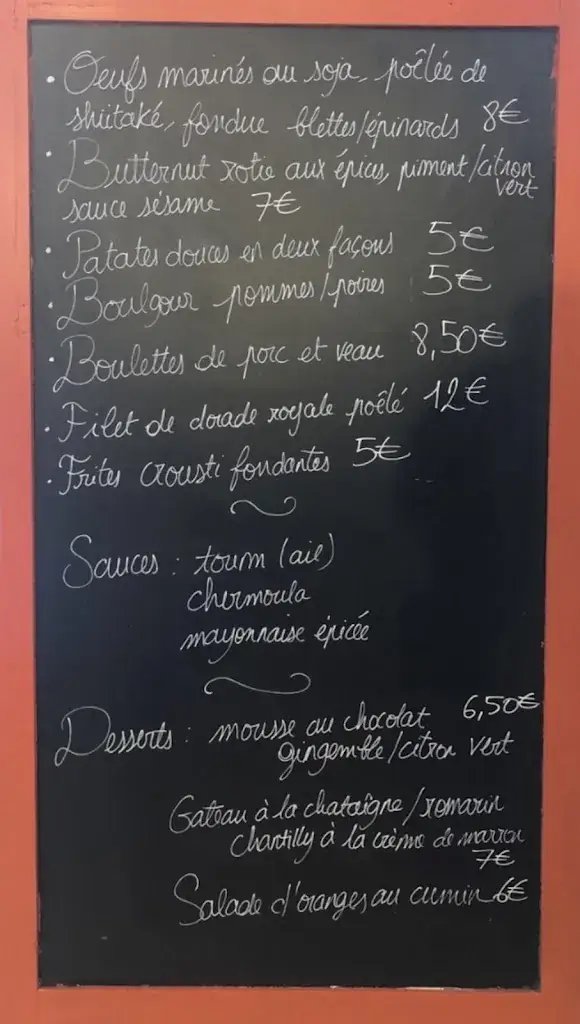 • Oeufs marinés au soja, poêlée de
shiitaké, fondue blettes/épinards 8€
• Butternut rotie aux épices, piment/citron
vert
sauce sésame 7€
• Patates douces en deux façons 5€
• Boulgour pommes/poires 5€
• Boulettes de porc et veau 8,50€
• Filet de dorade royale poêlé 12€
• Frites crousti fondantes 5€
Sauces : toum (ail)
chermoula
mayonnaise épicée
Desserts : mousse au chocolat 6,50€
gingembre/citron vert
Gateau à la chataîgne/romarin
chantilly à la crème de marron
7€
Salade d'oranges au cumin 6€